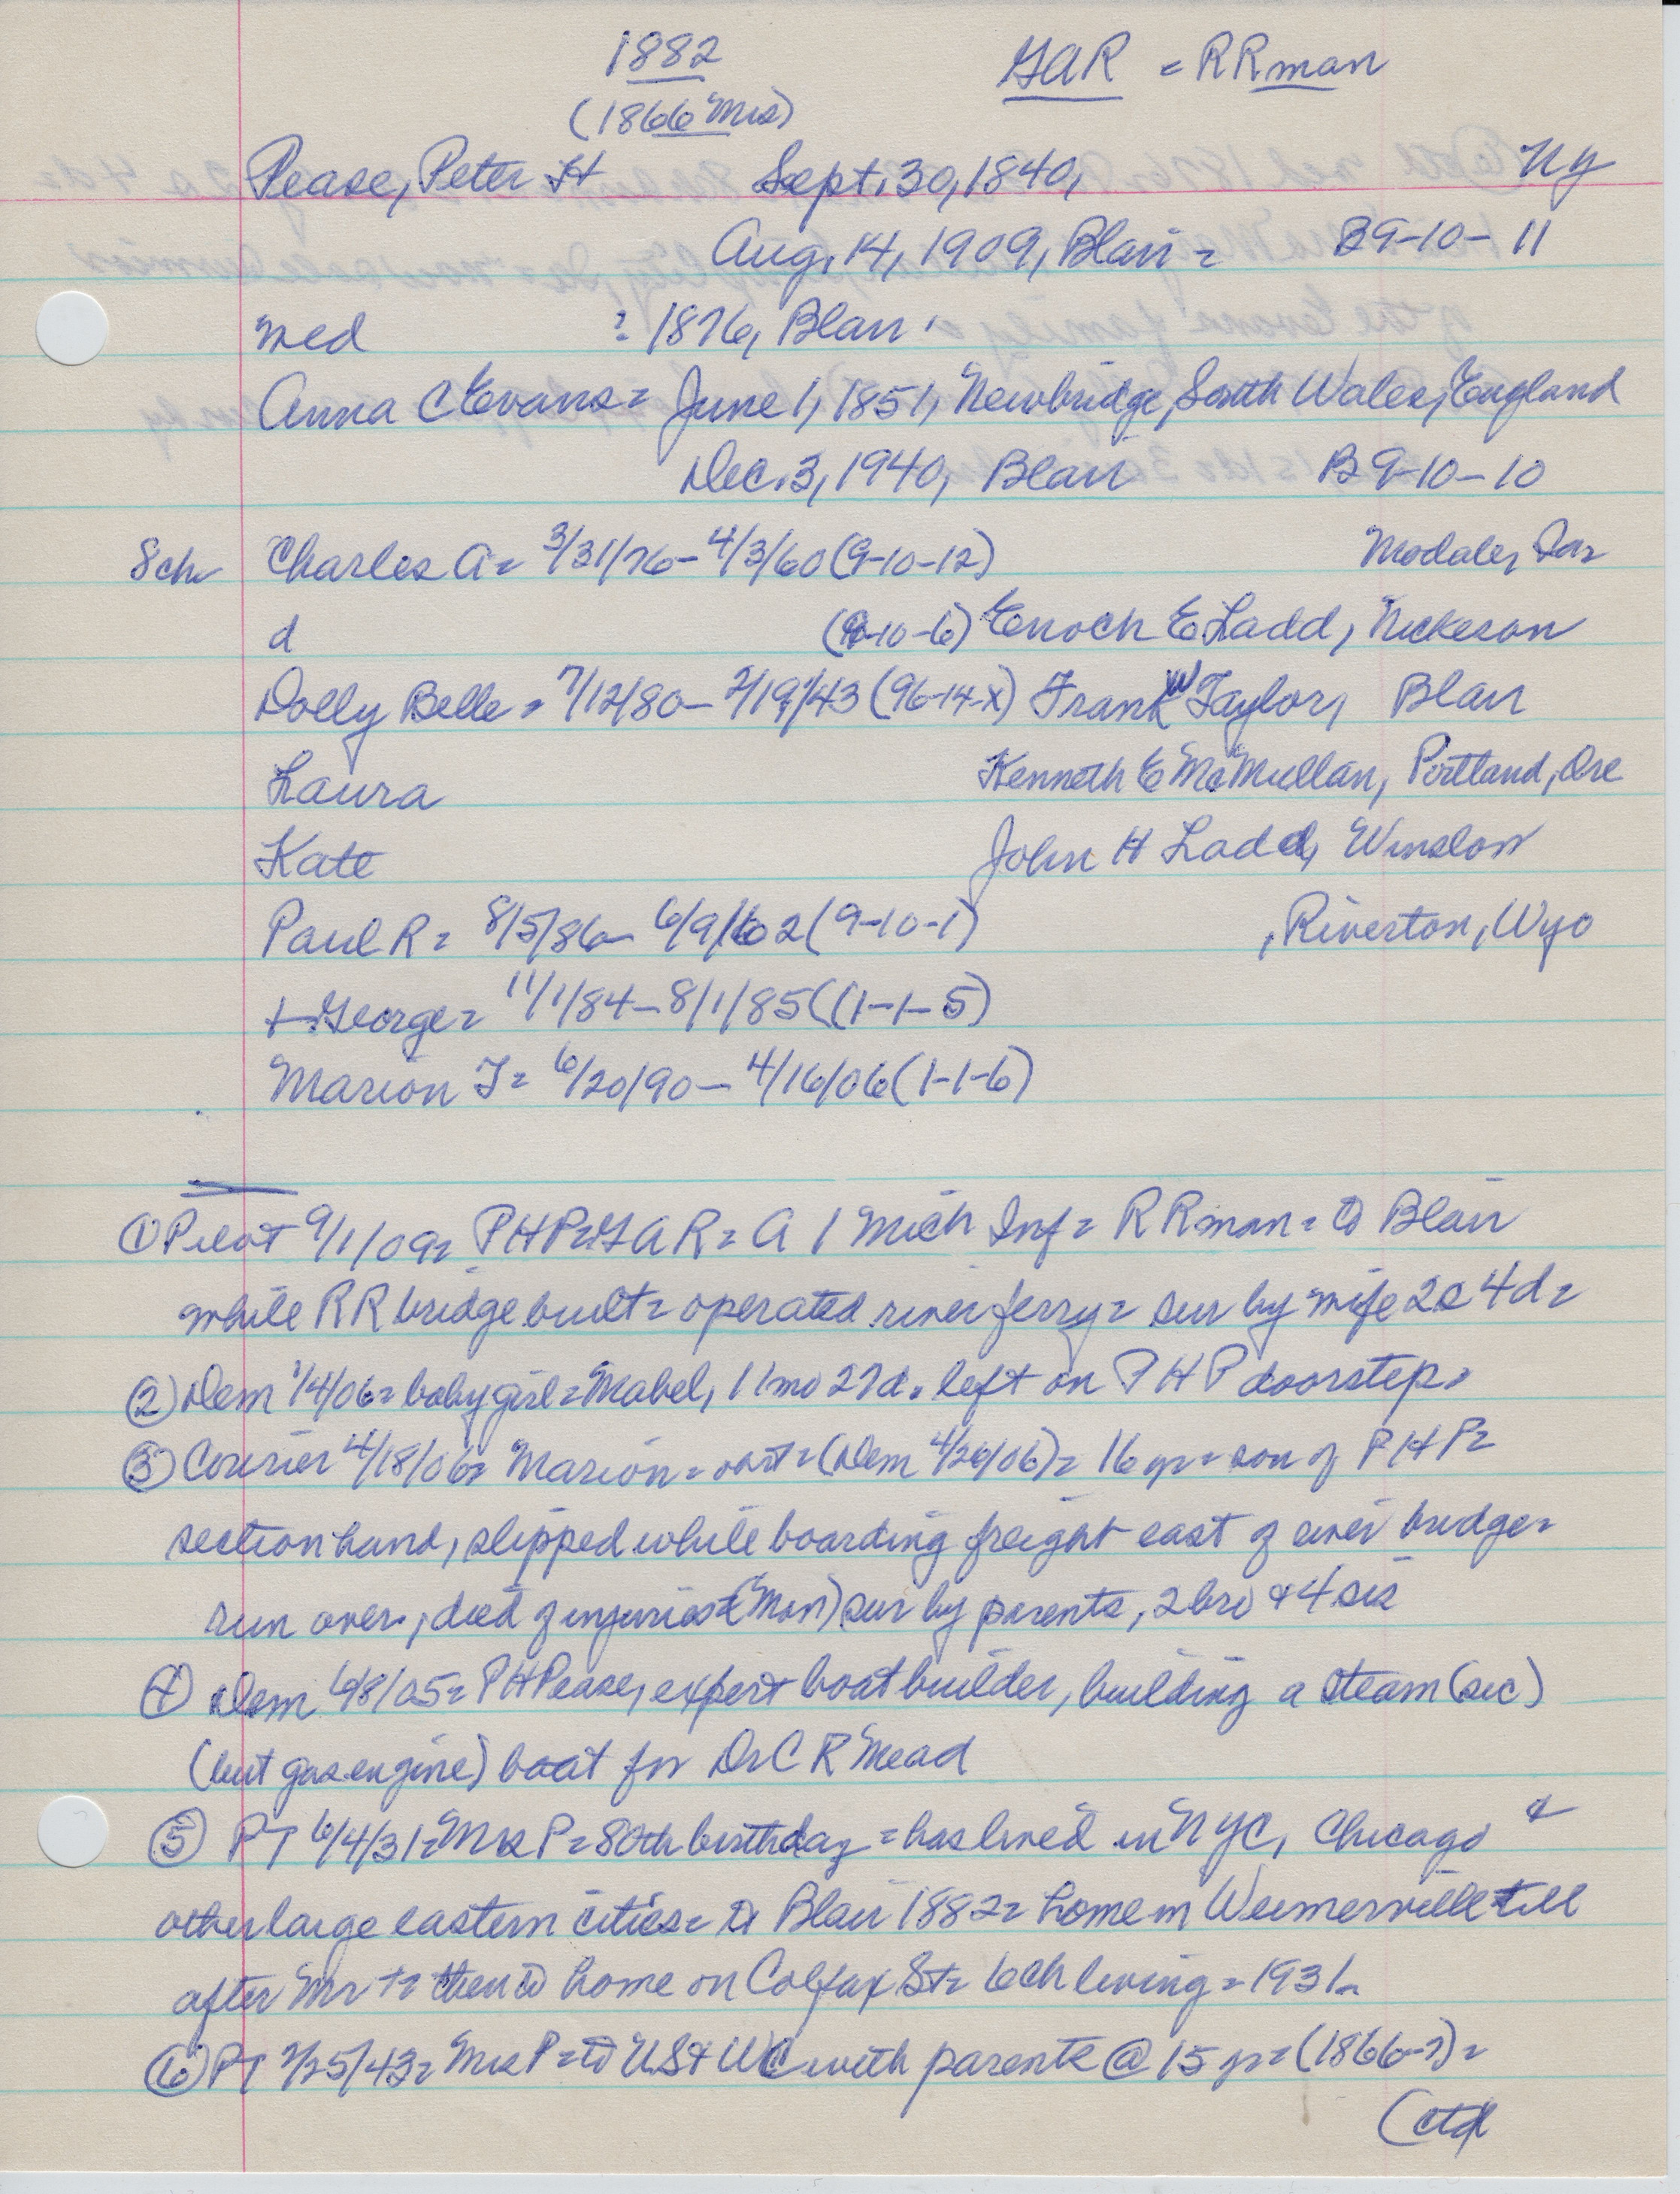 1882 GAR = RRman
(1866 Mrs)
Pease, Peter H Sept. 30, 1840, NY
Aug. 14, 1909, Blair = B9-10-11
med = 1876, Blair
Anna C Evans = June 1, 1851, Newbridge, South Wales, England
Dec. 3, 1940, Blair B9-10-10
8ch Charles A = 3/31/76 - 4/3/60 (9-10-12) Modale, Ia
d (9-10-6) Enoch E Ladd, Nickeson
Dolly Belle = 7/12/80 - 2/19/43 (96-14-X) Frank W Taylor, Blair
Laura Kenneth E McMullan, Portland, Ore
Kate John H Ladd, Winslow
Paul R = 8/5/86 - 6/9/62 (9-10-1) , Riverton, Wyo
+ George = 11/1/84 - 8/1/85 ((1-1-5)
Marion F = 6/20/90 - 4/16/06 (1-1-6)
① Pilot 9/1/09 = PHP = GAR = A 1 Mich Inf = RRman = to Blair
while RR bridge built = operated river ferry = sur by wife 2s 4d =
② Dem 1/4/06 = baby girl = Mabel, 11mo 27d. left on PHP doorstep =
③ Courier 4/18/06 = Marion = = (Dem 4/26/06) = 16 yr = son of PHP =
section hand, slipped while boarding freight east of river bridge =
run over, died of injuries (Mon) sur by parents, 2 bro & 4 sis
④ Dem 6/8/05 = PHPease, expert boat builder, building a steam (sic)
(but gas engine) boat for Dr C R Mead
⑤ PT 6/4/31 = Mrs P = 80th birthday = has lived in NYC, Chicago &
other large eastern cities = to Blair 1882 = home in Weimerville till
after Mr + = then to home on Colfax St = 6ch living = 1931 =
⑥ PT 2/25/43 = Mrs P = to US & WC with parents @ 15 yr = (1866-7) =
(ctd